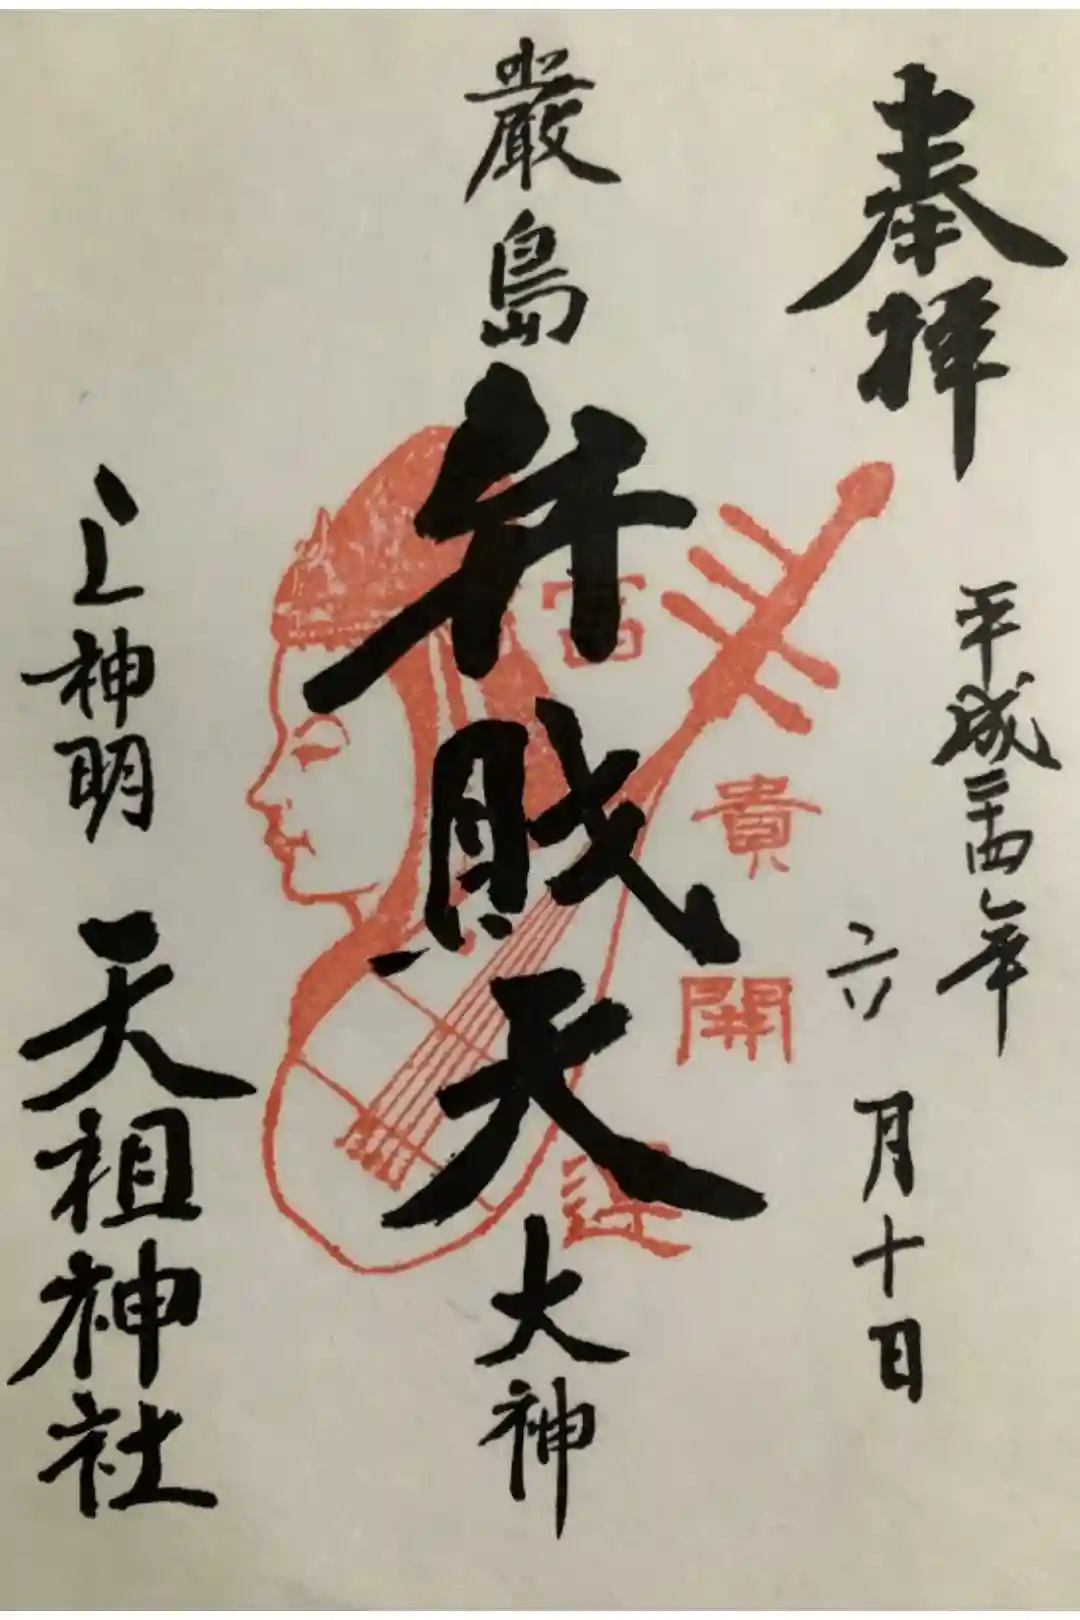 奉拝
平成二十四年
六月十日
厳島
弁財天
大神
富貴開運
上神明
天祖神社